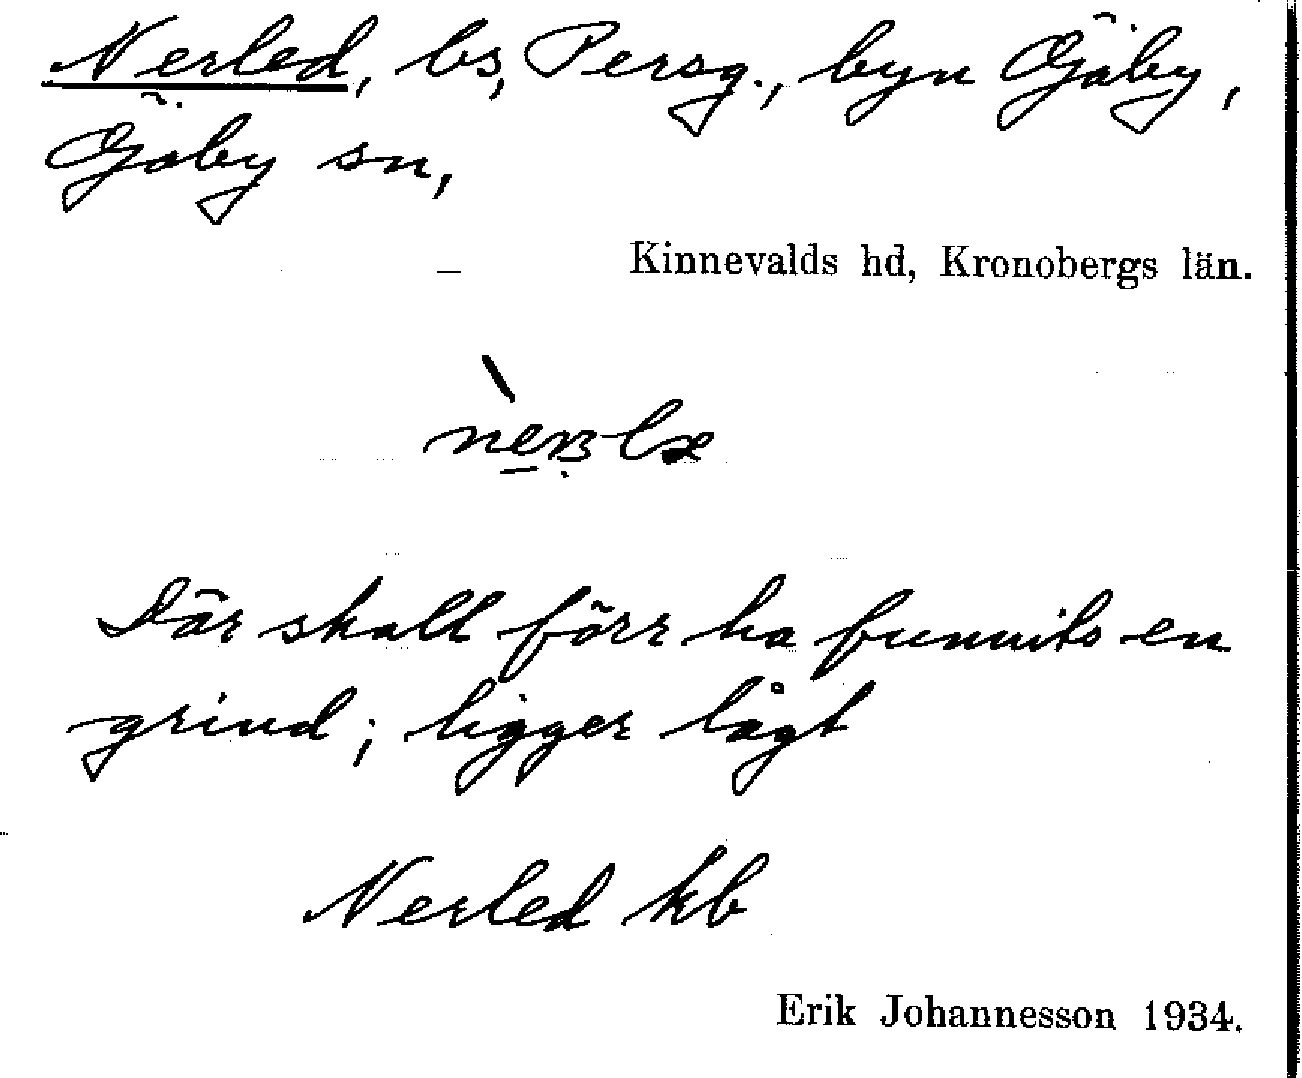 Nerled, bs, Persg., byn Öjaby,
Öjaby sn,
Kinnevalds hd, Kronobergs län.
Där skall förr ha funnits en
grind; ligger lågt
Nerled kb
Erik Johannesson 1934.